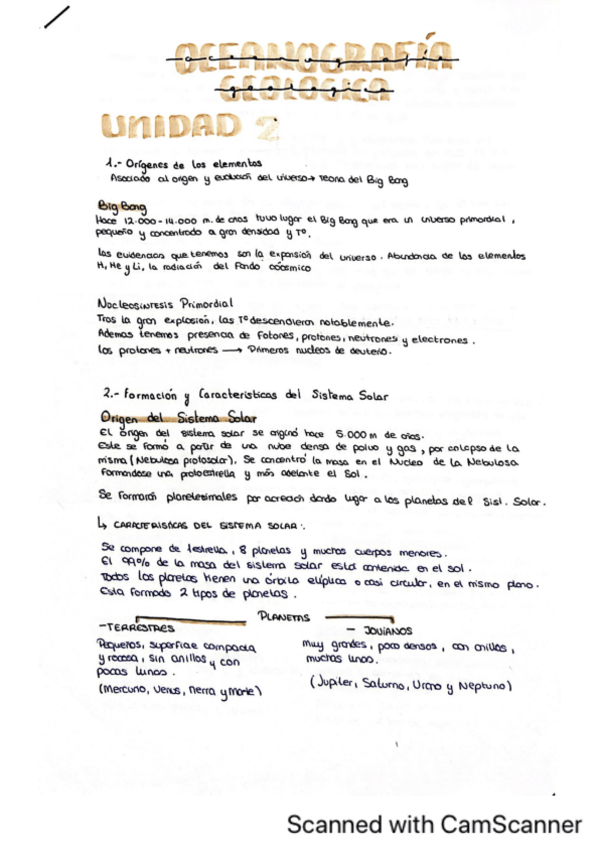 OCEANOGRAFÍA
GEOLÓGICA
UNIDAD 2
1.- Orígenes de los elementos
Asociado al origen y evolución del universo → teoria del Big Bang
Big Bang
Hace 12.000-14.000 m. de años tuvo lugar el Big Bang que era un universo primordial,
pequeño y concentrado a gran densidad y Tº.
Las evidencias que tenemos son la expansión del universo. Abundancia de los elementos
H, He y Li, la radiación del fondo cósmico
Nucleosintesis Primordial
Tras la gran explosión, las Tº descendieron notablemente.
Ademas tenemos presencia de fotones, protones, neutrones y electrones.
Los protones + neutrones → Primeros nucleos de deuterio.
2.- Formación y Caracteristicas del Sistema Solar
Origen del Sistema Solar
El origen del sistema solar se originó hace 5.000 m de años.
Este se formó a partir de una nube densa de polvo y gas, por colapso de la
misma (Nebulosa protosolar). Se concentró la masa en el Nucleo de la Nebulosa
formandose una protoestrella y más adelante el Sol.
Se formarón planetesimales por acreción dando lugar a los planetas del Sist. Solar.
↳ CARACTERISTICAS DEL SISTEMA SOLAR:
Se compone de 1 estrella, 8 planetas y muchos cuerpos menores.
El 99% de la masa del sistema solar está contenida en el sol.
Todos los planetas tienen una órbita elíptica o casi circular, en el mismo plano.
Esta formado 2 tipos de planetas.
PLANETAS
-TERRESTRES
Pequeños, superficie compacta
y rocosa, sin anillos y con
pocas lunas.
(Mercurio, Venus, Tierra y Marte)
- JOVIANOS
Muy grandes, poco densos, con anillos,
muchas lunas.
(Jupiter, Saturno, Urano y Neptuno)
Scanned with CamScanner